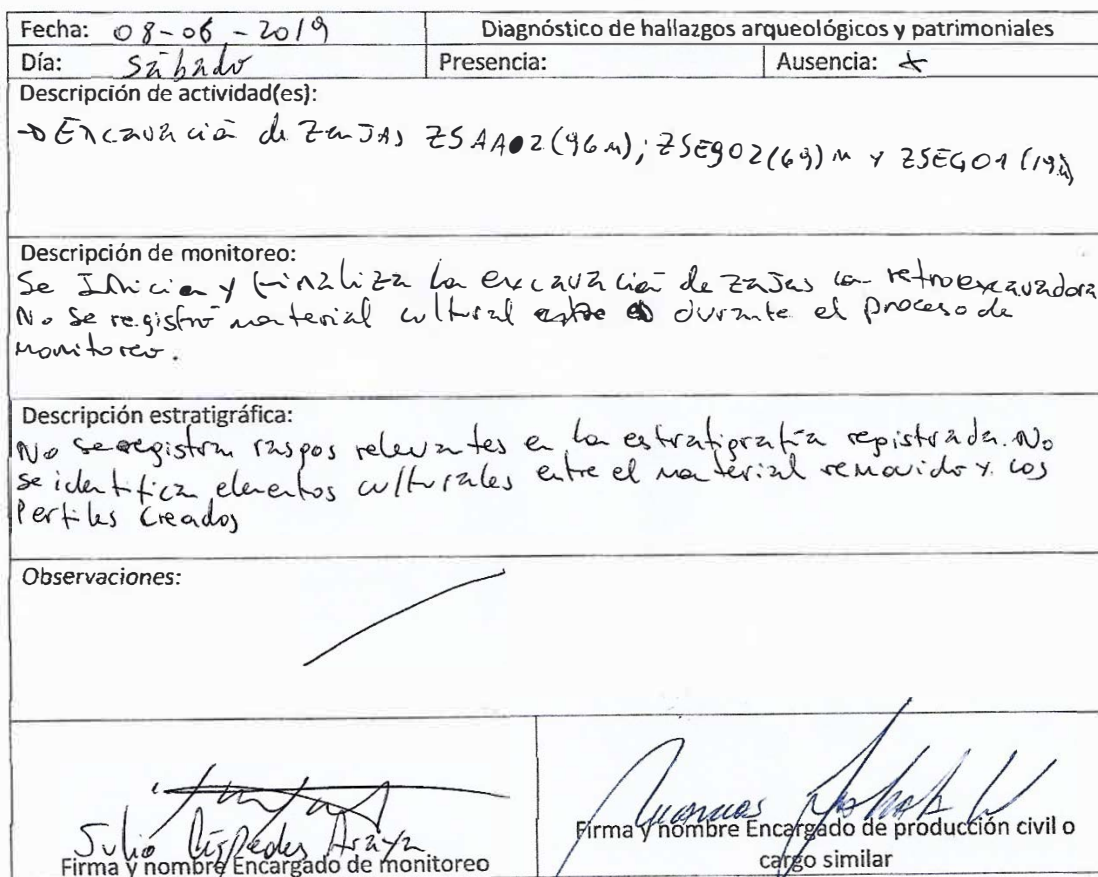 Fecha: 08-06-2019
Diagnóstico de hallazgos arqueológicos y patrimoniales
Día: Sábado
Presencia:
Ausencia: x
Descripción de actividad(es):
→ Excavación de Zanjas ZSAA02 (96 m); ZSEG02 (69) m y ZSEG01 (19 m)
Descripción de monitoreo:
Se Inicia y finaliza la excavación de zajas con retroexcavadora
No se registró material cultural durante el proceso de
monitoreo.
Descripción estratigráfica:
No se registran raspos relevantes en la estratigrafía registrada. No
se identifica elementos culturales entre el material removido y los
Perfiles creados
Observaciones:
Julio Céspedes Araya
Firma y nombre Encargado de monitoreo
Firma y nombre Encargado de producción civil o
cargo similar